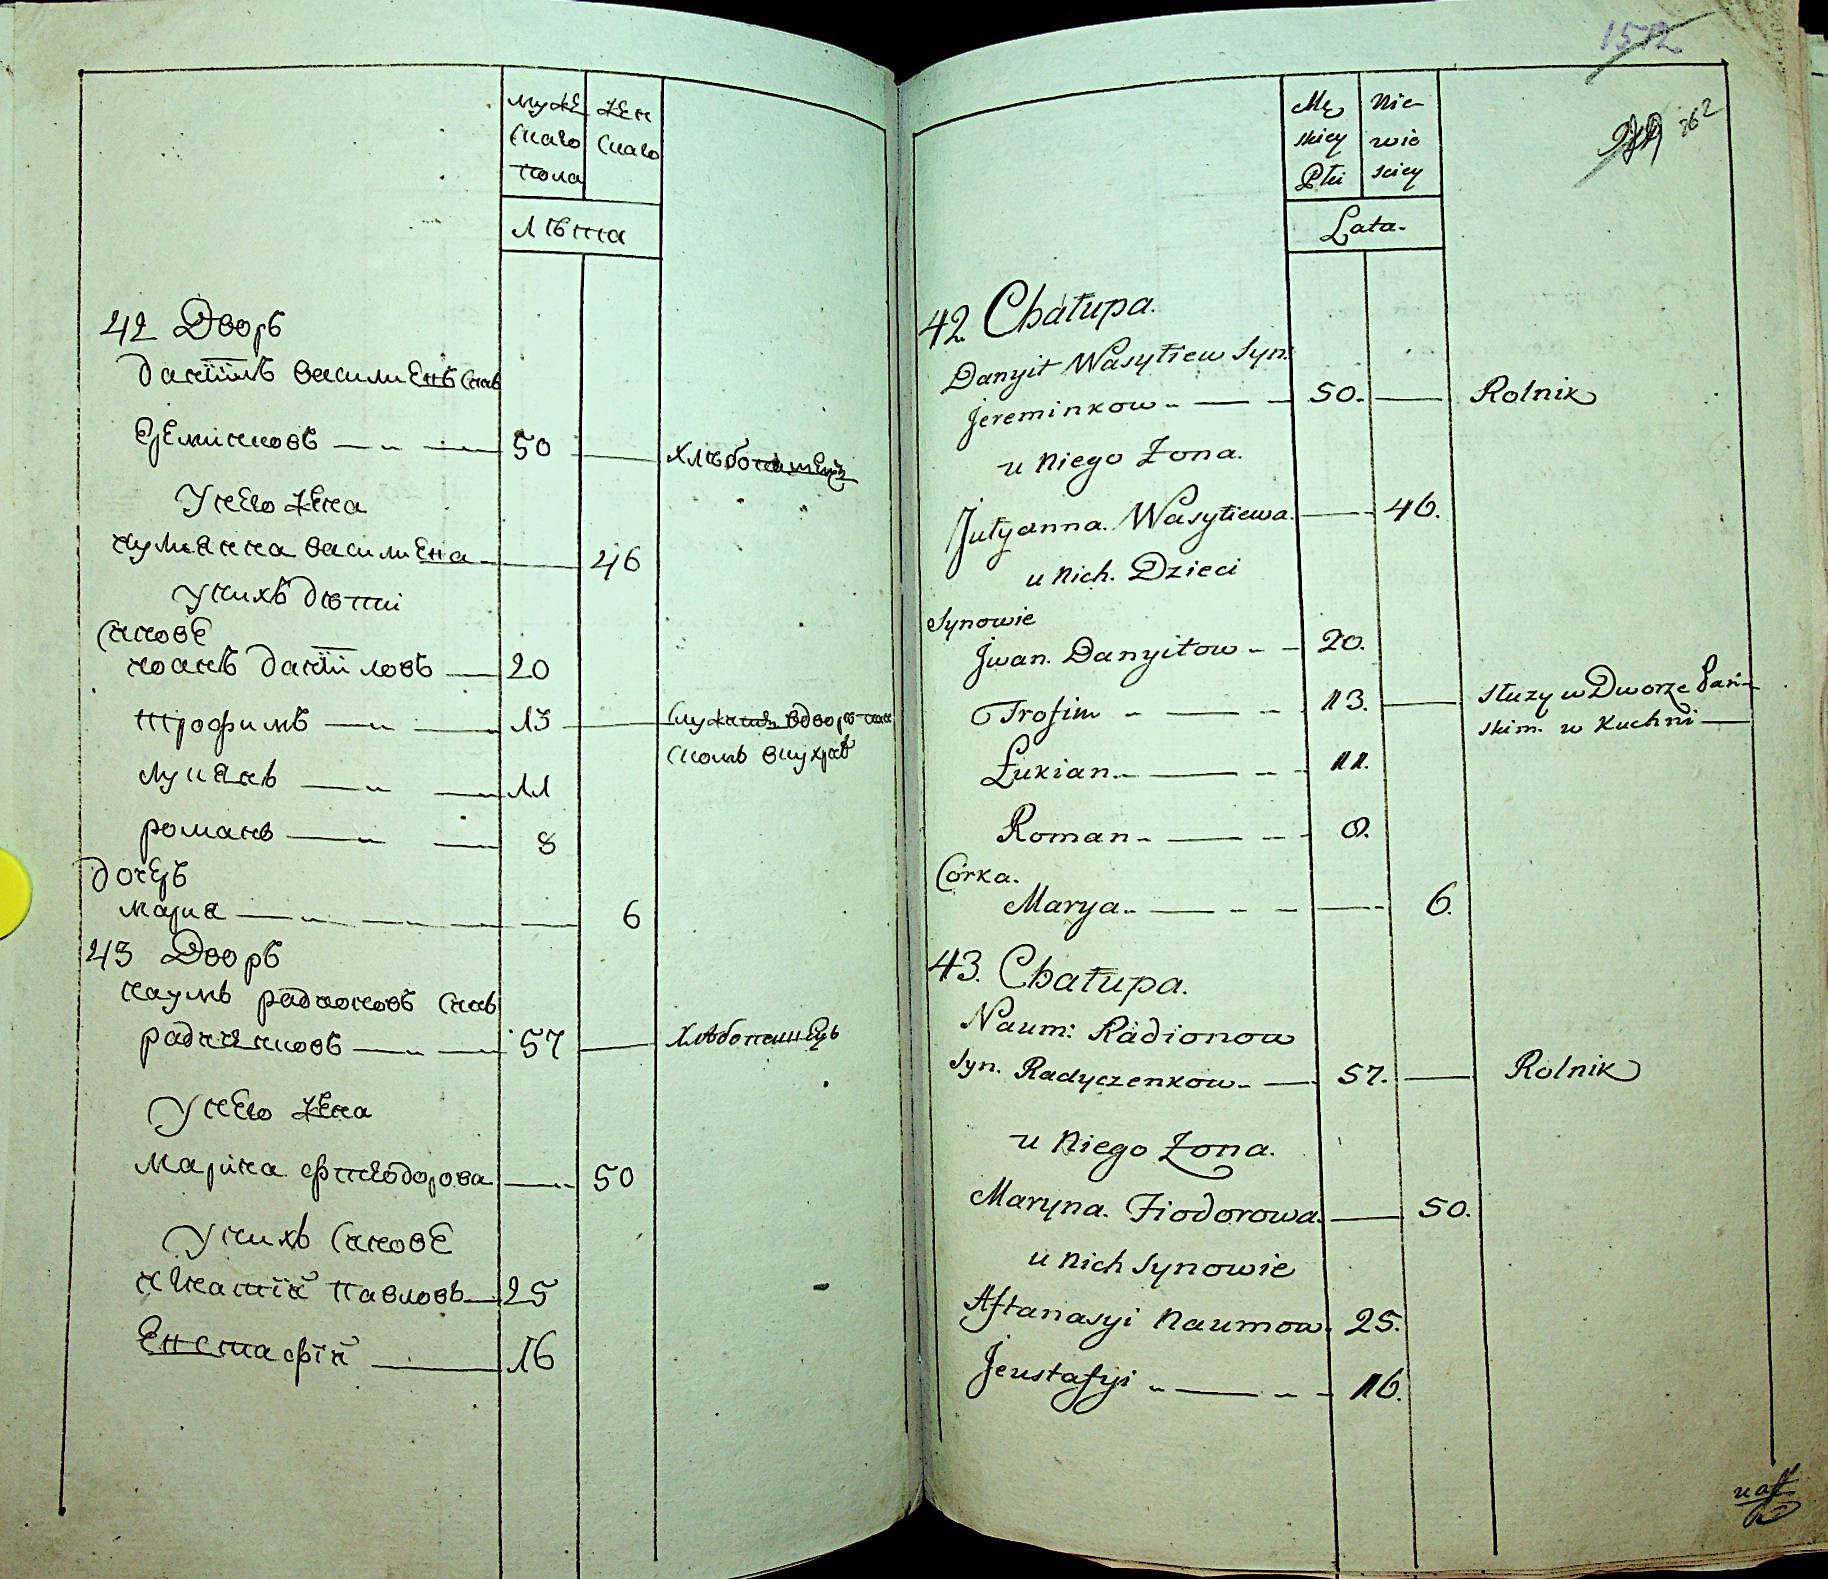 муже жен
скаго скаго
пола
лѣта
42 Дворъ
данїилъ василиевъ снъ
Еремінковъ — „ — 50 — хлѣбопашецъ
У него жена
иулианна василиева — 46
у нихъ дѣти
сновѣ
иоанъ данїиловъ — 20
трофимъ — „ — 13 — служитъ вдворѣ пан
скомъ вкухнѣ
лукианъ — „ — 11
романъ — „ — 8
дочеръ
мария — „ — 6
43 Дворъ
наумъ радионовъ снъ
радиченковъ — „ — 57 — хлѣбопашецъ
У него жена
Марина фтеодорова — 50
У нихъ сновѣ
павловъ — 25
Евстафїй — 16
1572
362
Mę Nie
skiey wie
Płci sciey
Lata.
42. Chałupa.
Danyił Wasyliew Syn.
Jereminkow „ — 50. — Rolnik
u Niego Żona.
Julyanna. Wasyliewa. — 46.
u Nich. Dzieci
Synowie
Jwan. Danyiłow „ — 20.
Trofim „ — „ — 13. — służy w Dworze Pań-
skim. w Kuchni —
Łukian „ — „ — 11.
Roman „ — „ — 8.
Córka.
Marya „ — „ — 6.
43. Chałupa.
Naum: Radionow
Syn. Radyczenkow „ — 57. — Rolnik
u Niego Żona.
Maryna. Fiodorowa. — 50.
u Nich Synowie
Aftanasyi Naumow. 25.
Jeustafyi „ — „ — 16.